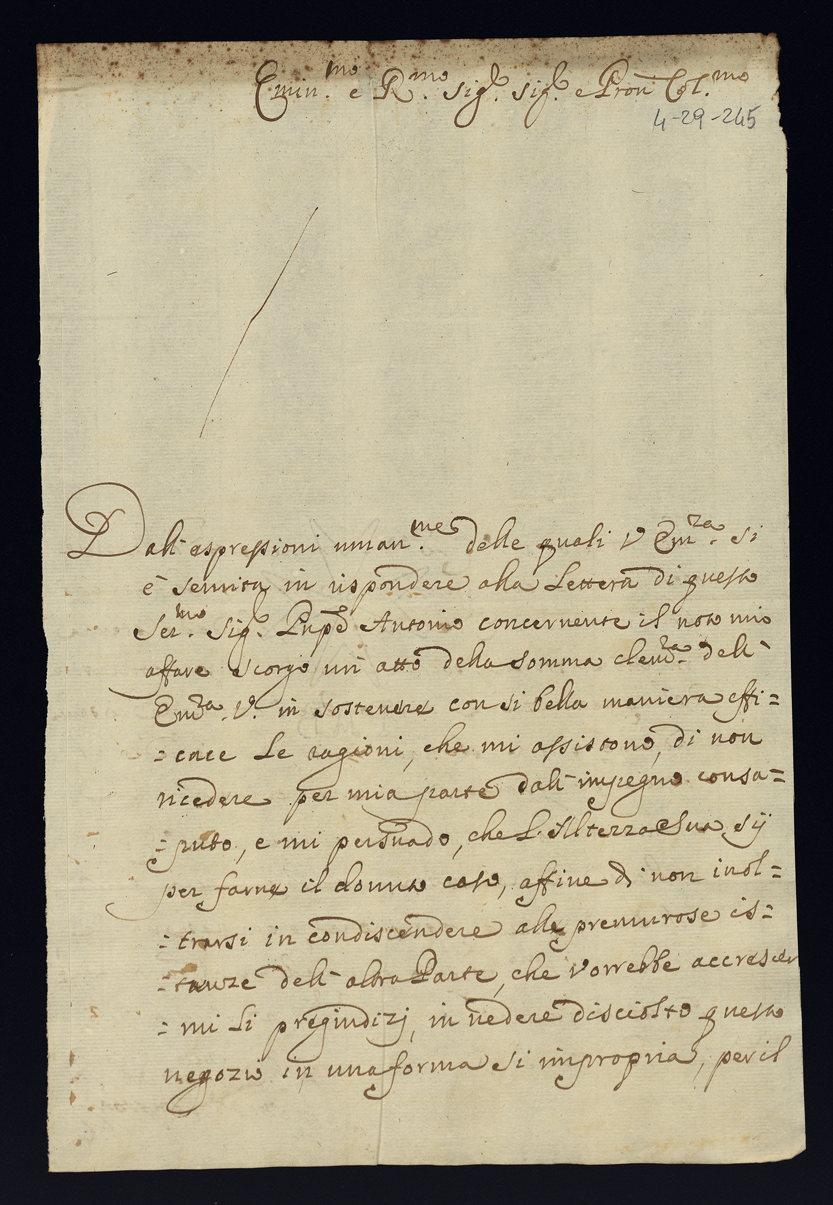 Emin.mo e R.mo Sig.r Sig.r e Pron Col.mo
4-29-245
Dall'espressioni uman.me delle quali V Em.za si
è servita in rispondere alla Lettera di questo
Ser.mo Sig.r Pnpe Antonio concernente il noto mio
affare scorgo un atto della somma clem.za dell'
Em.za V. in sostenere con si bella maniera effi=
=cace le ragioni, che mi assistono, di non
ricedere per mia parte dall'impegno consa=
=puto, e mi persuado, che L'Altezza Sua sij
per farne il dovuto caso, affine di non inol=
=trarsi in condiscendere alle premurose is=
=tanze dell'altra Parte, che vorrebbe accrescer
=mi li pregiudizj, in vedere disciolto questo
negozio in una forma si impropria, per il